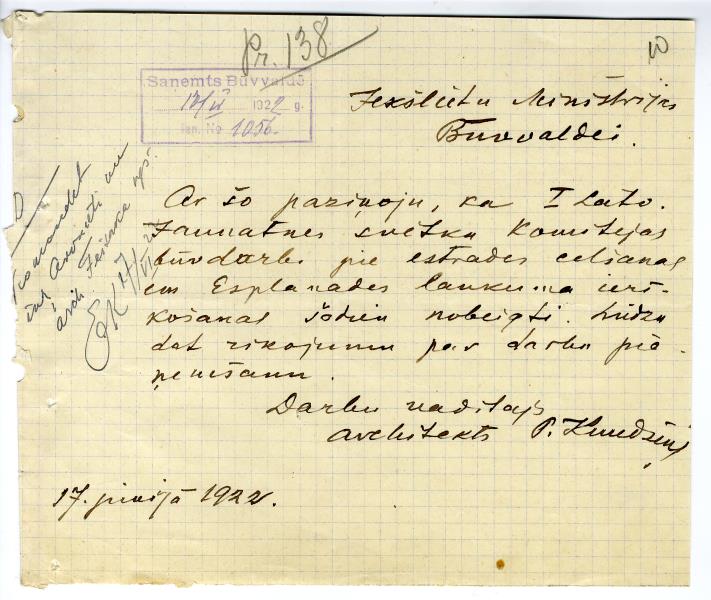 Pr. 138
10
Saņemts Būvvaldē
17/VI 1922 g.
Ien. No 1056.
Iekšlietu Ministrijas
Būvvaldei.
Ar šo paziņoju, ka I Latv.
Jaunatnes svētku Komitejas
būvdarbi pie estrades celšanas
un Esplanades laukuma ierī-
košanas šodien nobeigti. Lūdzu
dot rīkojumu par darbu pie-
ņemšanu.
Darbu vadītājs
architekts P. Kundziņš
17. jūnijā 1922.
Komandēt
arch.
17/VI